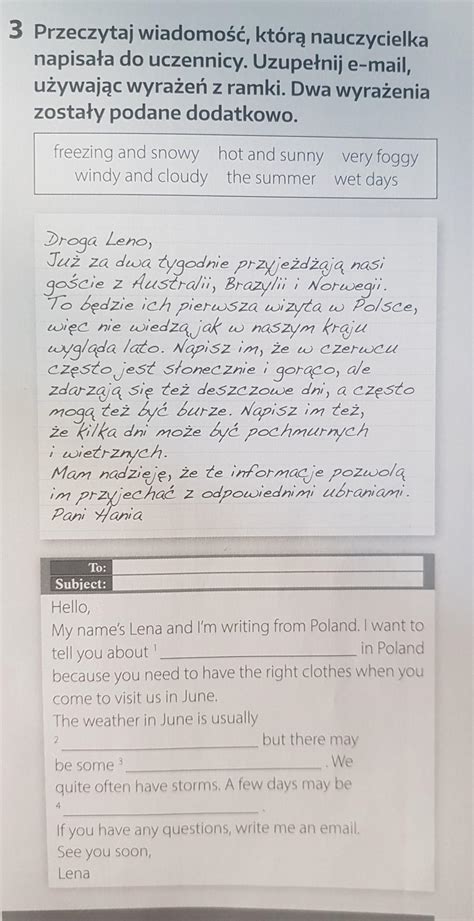 3 Przeczytaj wiadomość, którą nauczycielka
napisała do uczennicy. Uzupełnij e-mail,
używając wyrażeń z ramki. Dwa wyrażenia
zostały podane dodatkowo.
freezing and snowy hot and sunny very foggy
windy and cloudy the summer wet days
Droga Leno,
Już za dwa tygodnie przyjeżdżają nasi
goście z Australii, Brazylii i Norwegii.
To będzie ich pierwsza wizyta w Polsce,
więc nie wiedzą jak w naszym kraju
wygląda lato. Napisz im, że w czerwcu
często jest słonecznie i gorąco, ale
zdarzają się też deszczowe dni, a często
mogą też być burze. Napisz im też,
że kilka dni może być pochmurnych
i wietrznych.
Mam nadzieję, że te informacje pozwolą
im przyjechać z odpowiednimi ubraniami.
Pani Hania
To:
Subject:
Hello,
My name's Lena and I'm writing from Poland. I want to
tell you about 1 ____ in Poland
because you need to have the right clothes when you
come to visit us in June.
The weather in June is usually
2 ____ but there may
be some 3 ____. We
quite often have storms. A few days may be
4 ____.
If you have any questions, write me an email.
See you soon,
Lena